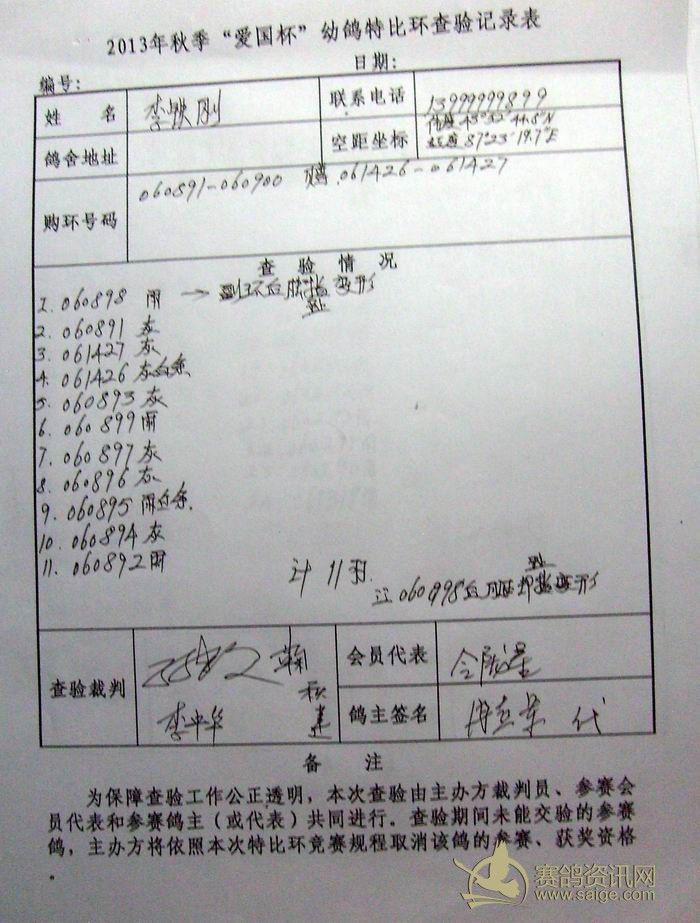 2013年秋季“爱国杯”幼鸽特比环查验记录表
编号： 日期：
姓 名 李铁刚 联系电话 13999999899
鸽舍地址 空距坐标 纬度 43°52′44.8″N
经度 87°23′19.7″E
购环号码 060891-060900 061426-061427
查 验 情 况
1. 060898 雨 → 副环后 变形
趾
2. 060891 灰
3. 061427 灰
4. 061426 灰白条
5. 060893 灰
6. 060899 雨
7. 060897 灰
8. 060896 灰
9. 060895 雨白条
10. 060894 灰
11. 060892 雨
计 11羽.
趾
变形
查验裁判 李中华 会员代表
鸽主签名 代
备 注
为保障查验工作公正透明，本次查验由主办方裁判员、参赛会
员代表和参赛鸽主（或代表）共同进行。查验期间未能交验的参赛
鸽，主办方将依照本次特比环竞赛规程取消该鸽的参赛、获奖资格
。
赛鸽资讯网
www.saige.com